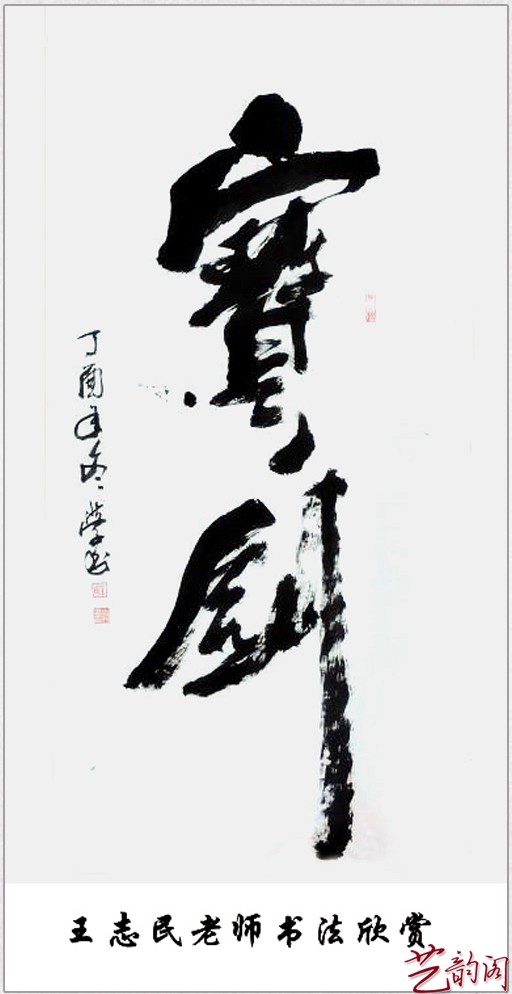 寶劍
丁酉年冬 學书
王志民老师书法欣赏
艺韵阁